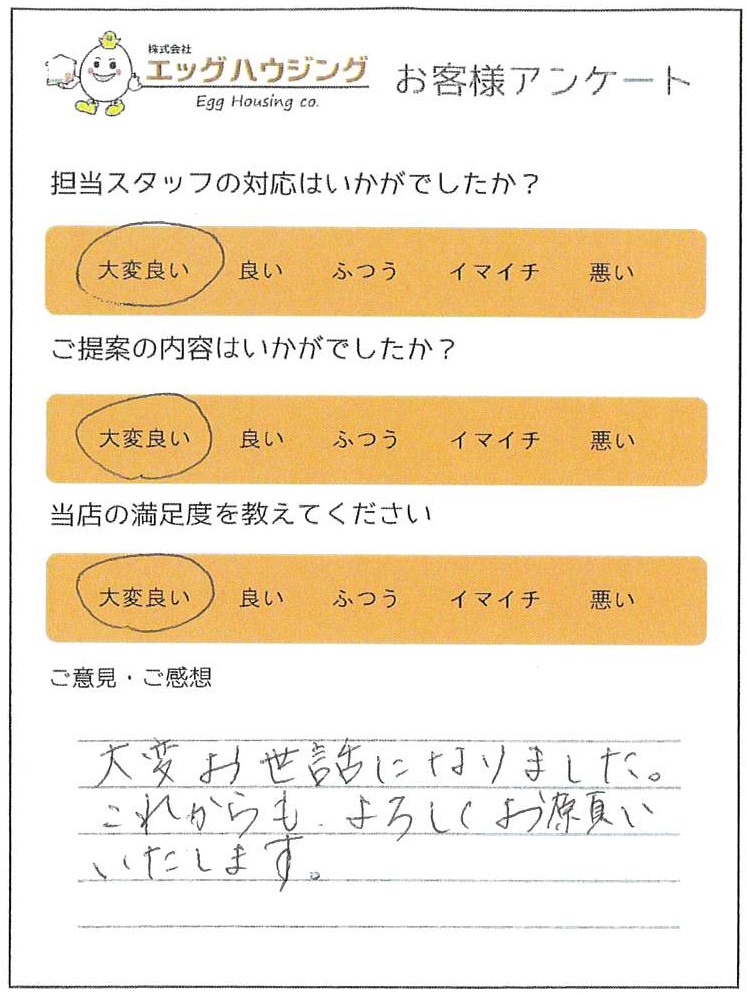 株式会社
エッグハウジング
Egg Housing co.
お客様アンケート
担当スタッフの対応はいかがでしたか？
大変良い 良い ふつう イマイチ 悪い
ご提案の内容はいかがでしたか？
大変良い 良い ふつう イマイチ 悪い
当店の満足度を教えてください
大変良い 良い ふつう イマイチ 悪い
ご意見・ご感想
大変お世話になりました。
これからも よろしくお願い
いたします。